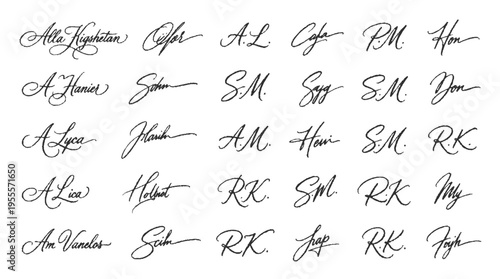 Alla Kigshetan Olfor A.L. Cafa P.M. Hon
A. Hanier Sohm S.M. Syg S.M. Don
A Lyca A.M. Hewi S.M. R.K.
A Lica Holhot R.K. S.M. R.K My
Am Vanelos Scilm R.K. Jrap R.K. Fojh
Adobe Stock | #1955571650